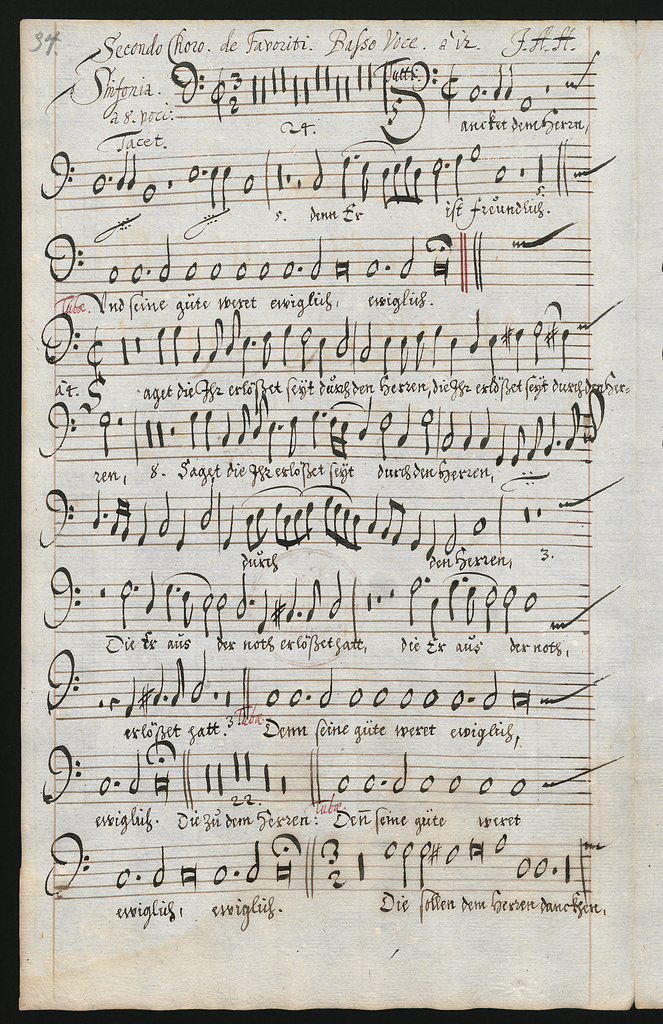 34.
Secondo Choro. de Favoriti. Basso Voce. à 12. J. H. H.
Sinfonia. Tutti
à 8. voci. 24. ancket dem Herrn,
Tacet.
5. denn Er ist freundlich. 5.
Tubæ. Und seine güte weret ewiglich, ewiglich.
à 4. Saget die Ihr erlößet seyt durch den Herren, die Ihr erlößet seyt durch den Her-
ren, 8. Saget die Ihr erlößet seyt durch den Herren,
durch den Herren, 3.
Die Er aus der noth erlößet hatt, die Er aus der noth,
erlößet hatt. 3. Tubæ. Denn seine güte weret ewiglich,
22.
ewiglich. Die zu dem Herren: Tubæ Den̄ seine güte weret
ewiglich, ewiglich. Die sollen dem Herren dancken,